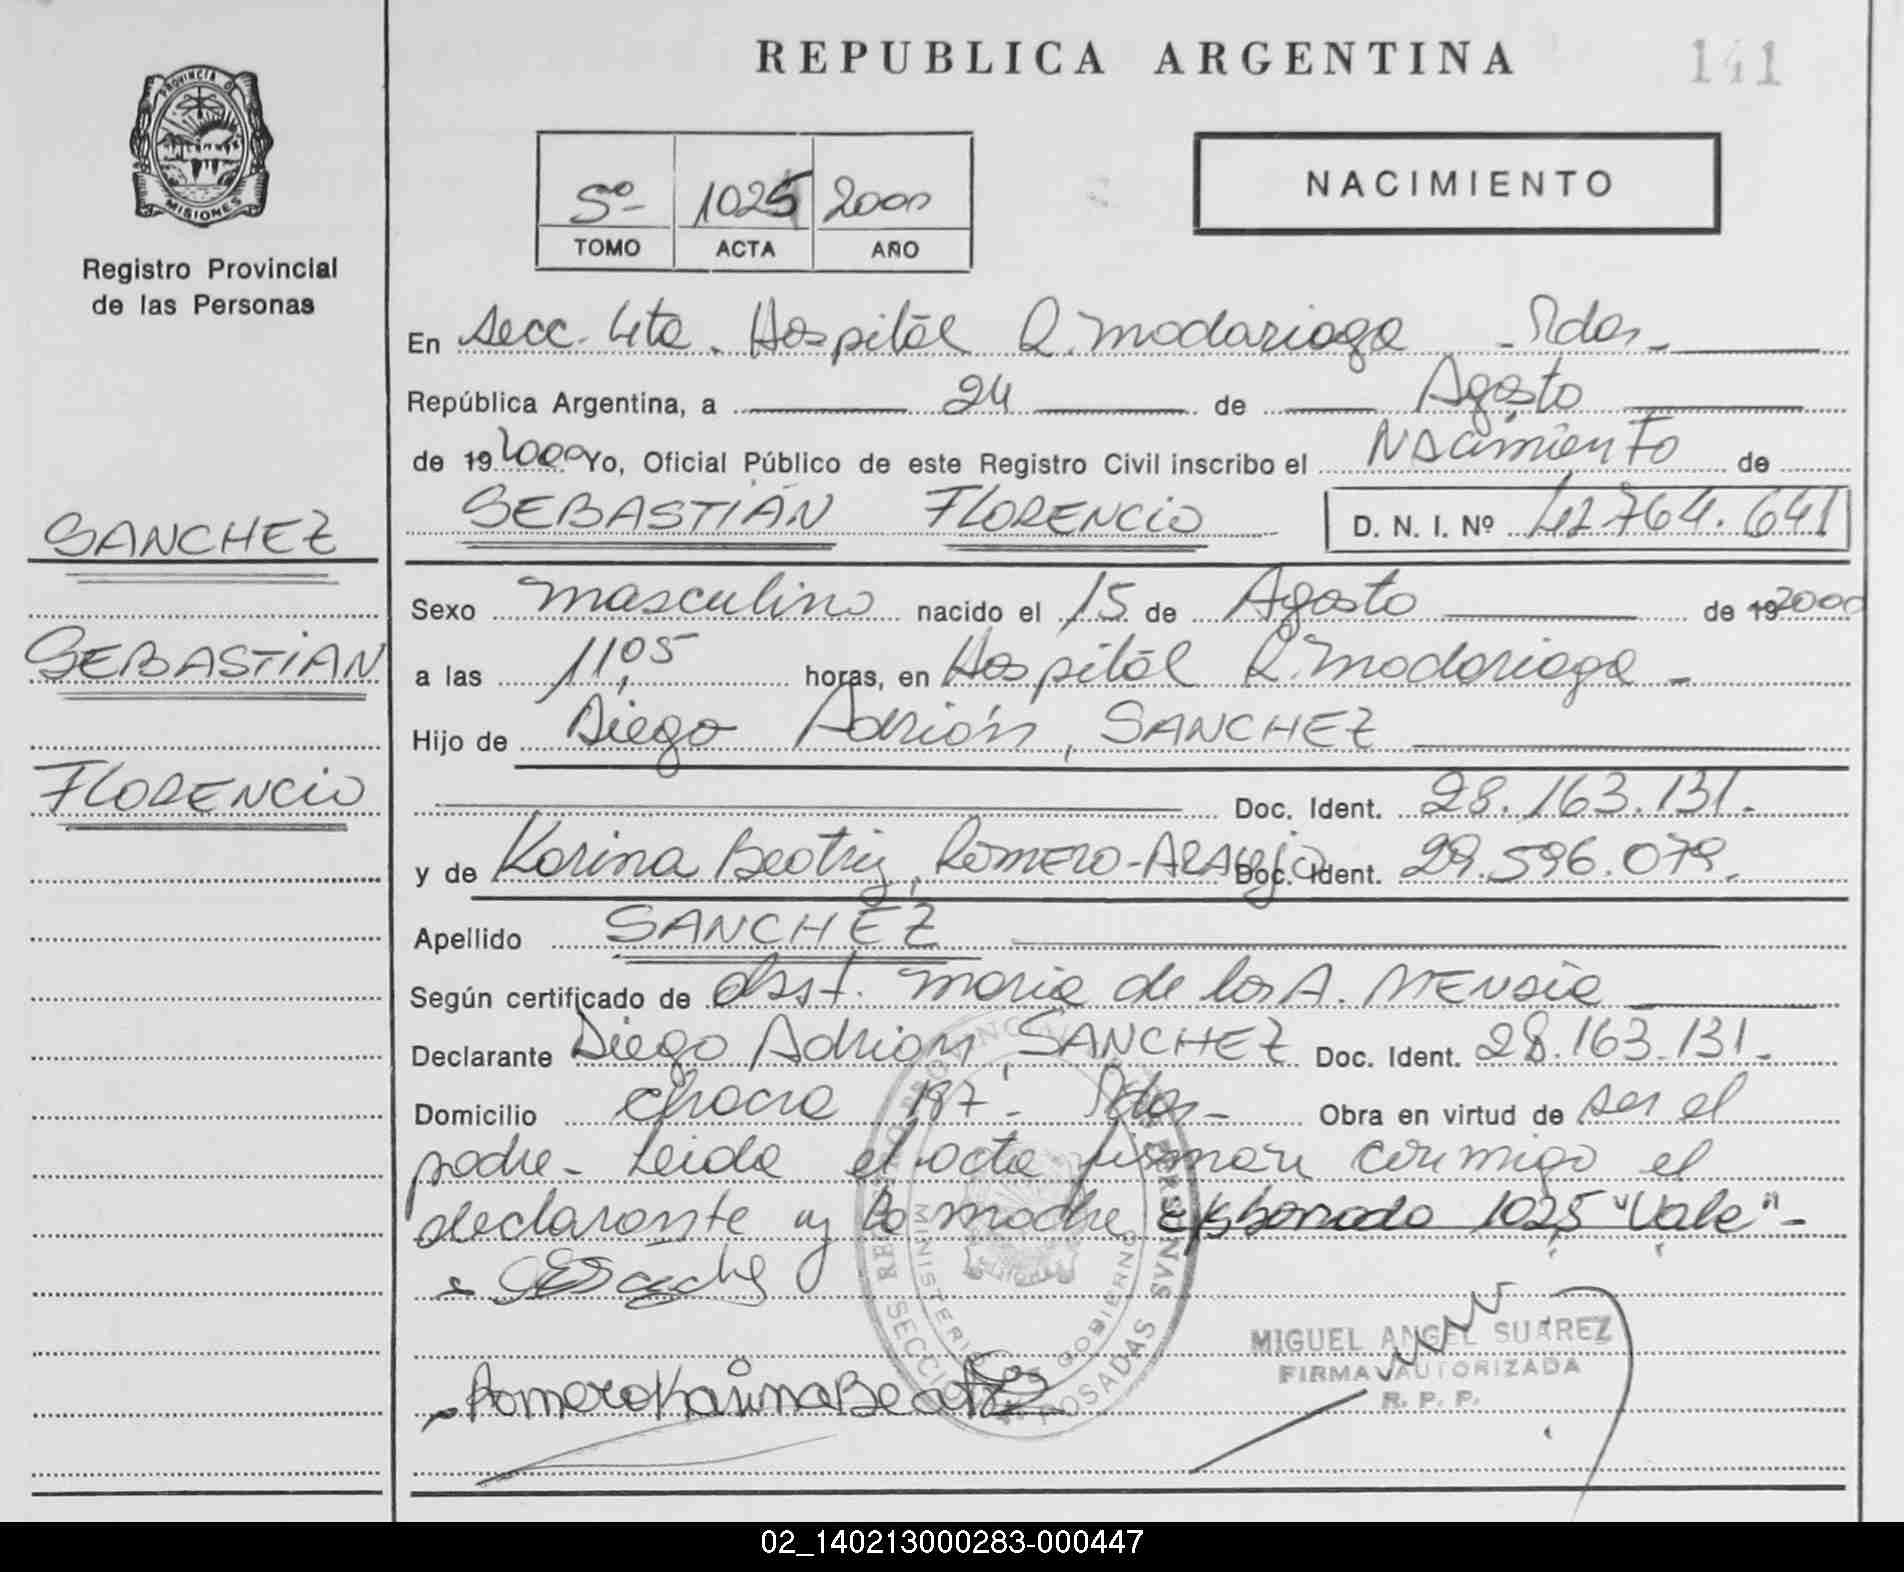 REPUBLICA ARGENTINA
141
PROVINCIA D
MISIONES
Registro Provincial
de las Personas
5º- 1025 2000
TOMO ACTA AÑO
NACIMIENTO
En Secc. 4ta. Hospital R. Madariaga - Pdas.-
República Argentina, a 24 de Agosto
de 19 2000 Yo, Oficial Público de este Registro Civil inscribo el Nacimiento de
SEBASTIÁN FLORENCIO D. N. I. Nº 42.764.641
SANCHEZ
SEBASTIAN
FLORENCIO
Sexo masculino nacido el 15 de Agosto de 19 2000
a las 11,05 horas, en Hospital R. Madariaga -
Hijo de Diego Adrián, SANCHEZ
Doc. Ident. 28.163.131.
y de Karina Beatriz, ROMERO-ARAUJO Doc. Ident. 29.596.079.
Apellido SANCHEZ
Según certificado de Obst. Maria de los A. MENSIE
Declarante Diego Adrian, SANCHEZ Doc. Ident. 28.163.131.
Domicilio Chacra 197- Pdas- Obra en virtud de ser el
padre- Leida el acta firman conmigo el
declarante y la madre 1025 "Vale"-
Romero Karina Beatriz
MINISTERIO DE GOBIERNO
POSADAS
MIGUEL ANGEL SUAREZ
FIRMA AUTORIZADA
R. P. P.
02_140213000283-000447